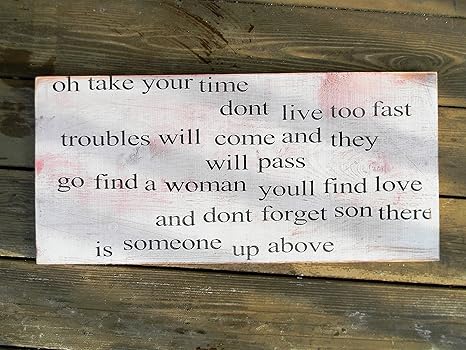 oh take your time
dont live too fast
troubles will come and they
will pass
go find a woman youll find love
and dont forget son there
is someone up above